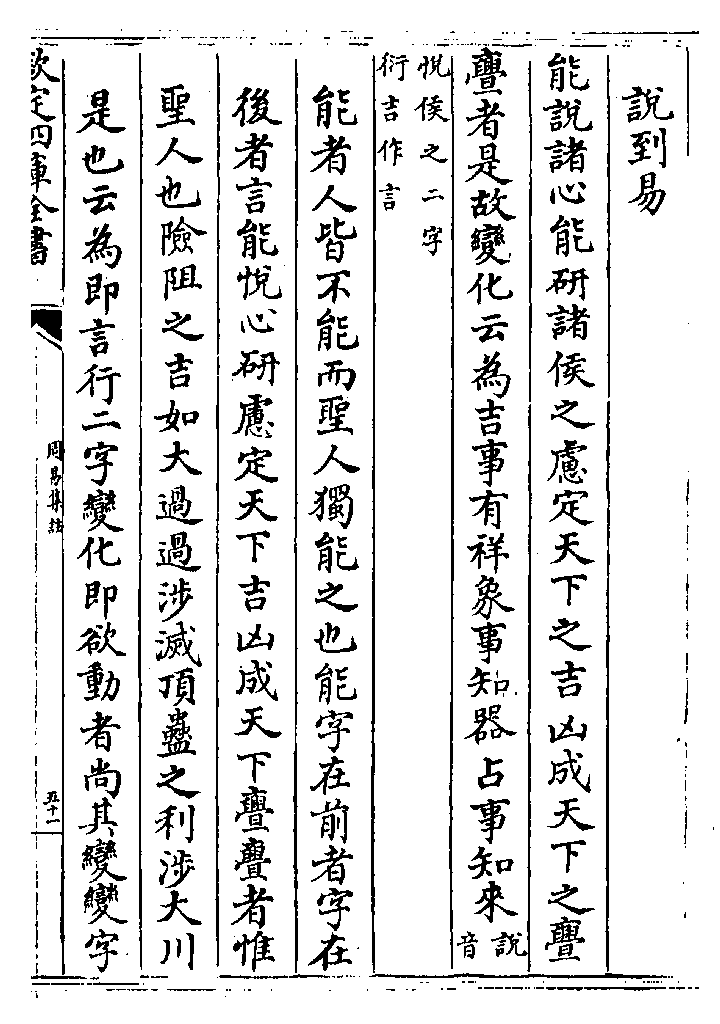 說到易
能說諸心能研諸侯之慮定天下之吉凶成天下之亹
亹者是故變化云為吉事有祥象事知器占事知來說音
悅侯之二字
衍吉作言
能者人皆不能而聖人獨能之也能字在前者字在
後者言能悅心研慮定天下吉凶成天下亹亹者惟
聖人也險阻之吉如大過過涉滅頂蠱之利涉大川
是也云為即言行二字變化即欲動者尚其變變字
欽定四庫全書
周易集註
五十一